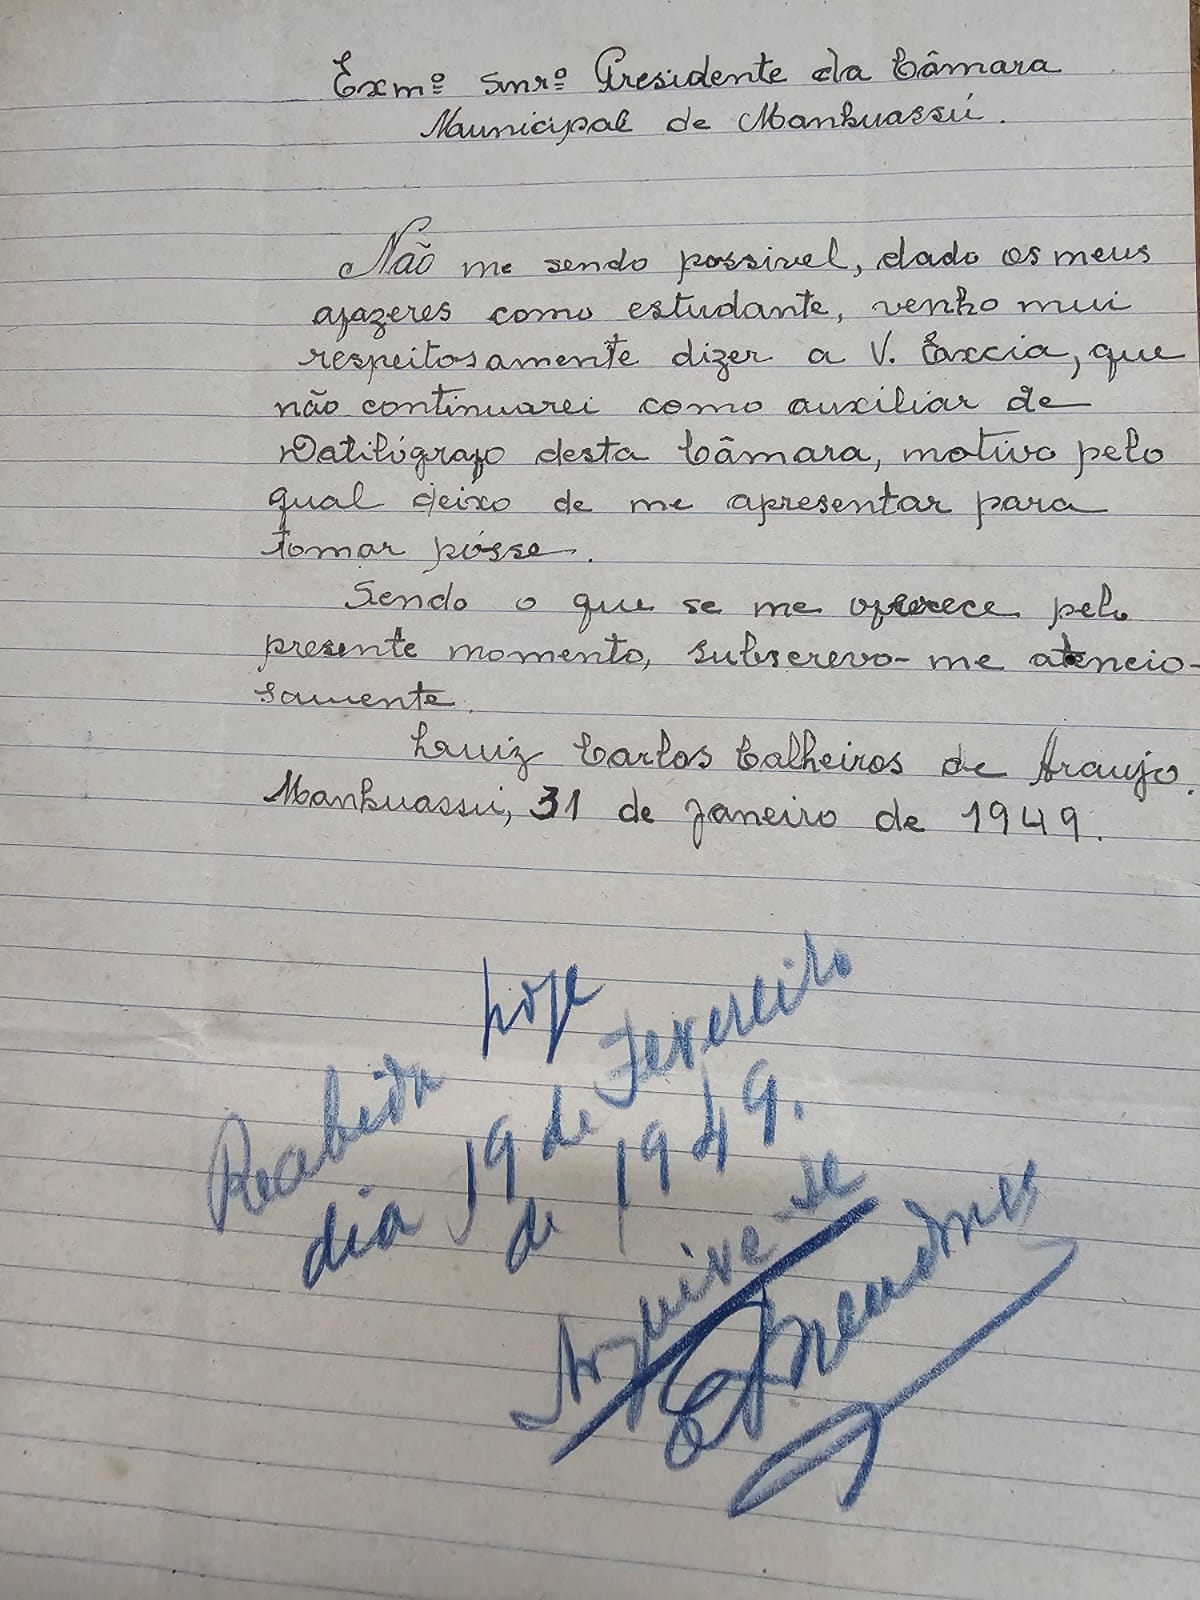 Exmº Snrº Presidente da Câmara
Municipal de Manhuassú.
Não me sendo possivel, dado os meus
afazeres como estudante, venho mui
respeitosamente dizer a V. Exccia, que
não continuarei como auxiliar de
Datilógrafo desta Câmara, motivo pelo
qual deixo de me apresentar para
tomar pósse.
Sendo o que se me oferece pelo
presente momento, subscrevo-me atencio-
samente.
Luiz Carlos Calheiros de Araujo.
Manhuassú, 31 de Janeiro de 1949.
Recebida hoje
dia 19 de Fevereiro
de 1949.
Arquive-se